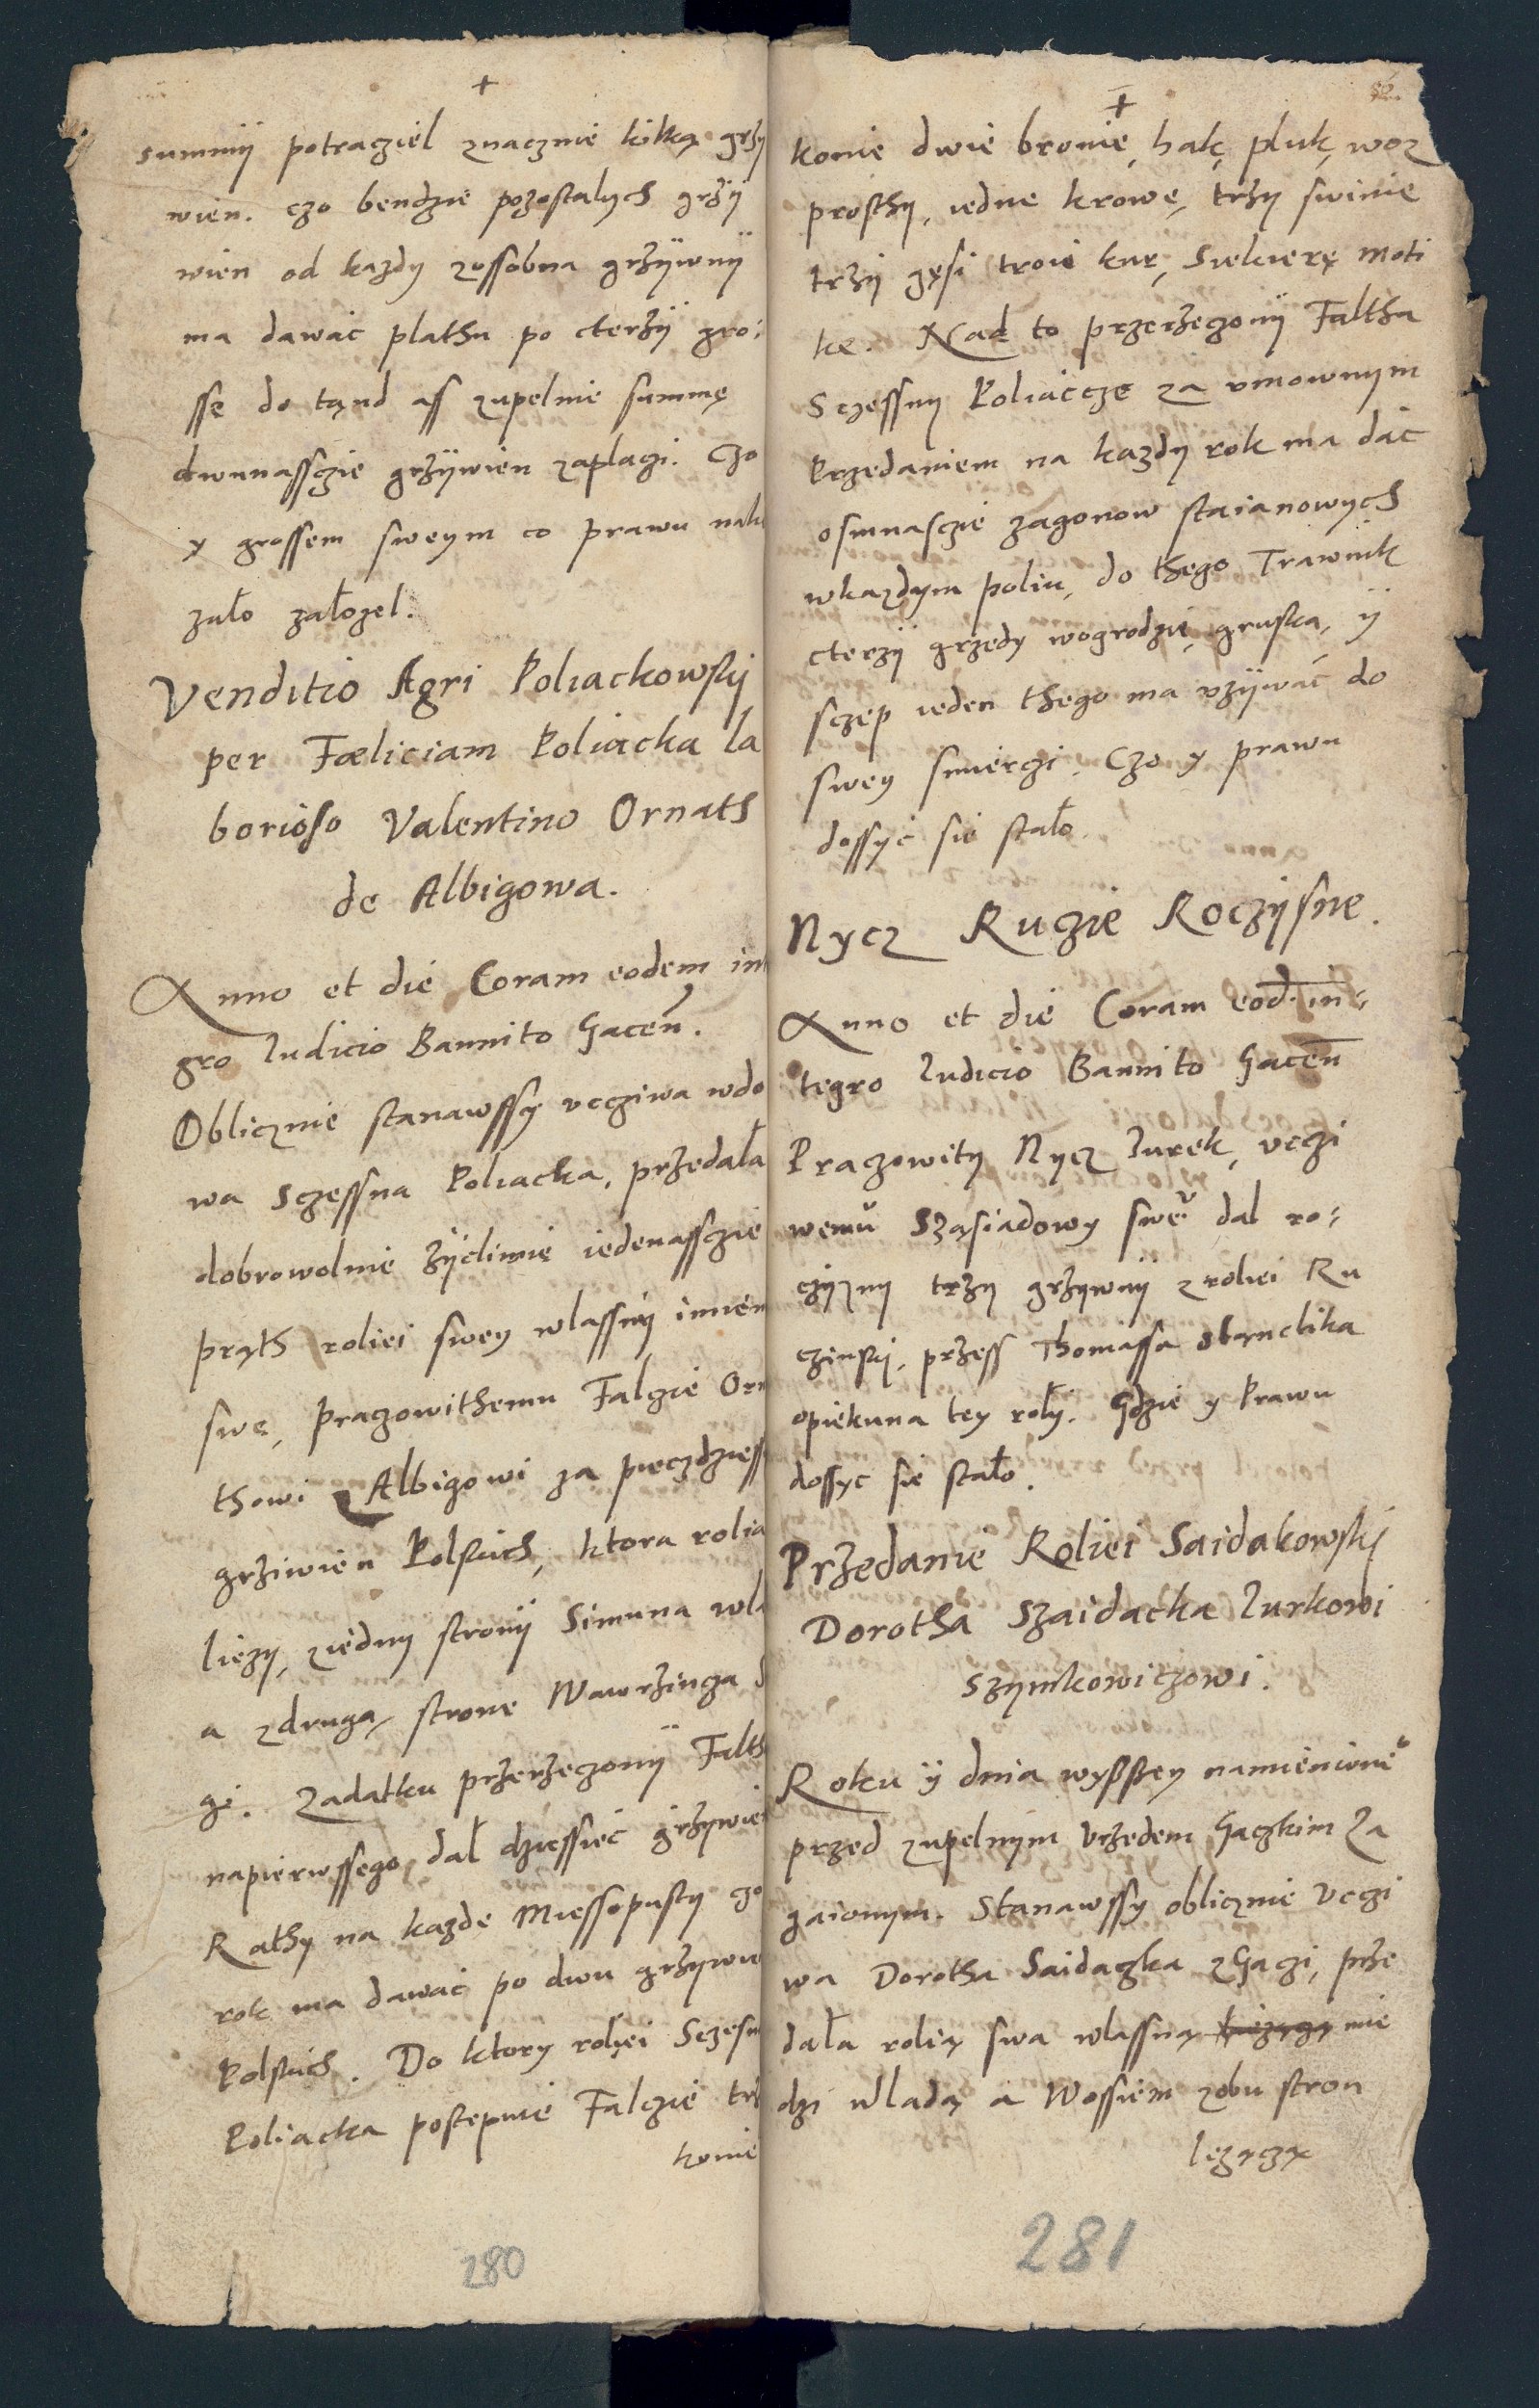 +
summij potracziel znacznie kilką grzy
wien. czo bendzie pozostalych grzÿ
wien od kazdy zossobna grzÿwnÿ
ma dawac plathu po cterzÿ gro-
sse do tąnd ass zupelnie summę
dwunassczie grzÿwien zaplaci. Czo
y grossem sweym co prawu nale
zało załozel.
Venditio Agri Poliackowskij
per Fœliciam Poliacka la
borioso Valentino Ornath
de Albigowa.
Anno et die Coram eodem in
gro Iudicio Bannito Gacen̄.
Oblicznie stanawssy vccziwa wdo
wa Sczessna Poliacka, przedała
dobrowolnie życliwie iedenassczie
pręth roliei swey wlassnÿ imien
swę, Praczowithemu Falczie Orn
thowi z Albigowi za pieczdziess
grziwien Polskich, ktora rolia
liezy, ziednÿ stronÿ Simuna wla
a zdrugą stronę Wawrzincza S
gi. Zadatku przerzeczonÿ Falth
napierwssego dał dziessiec grzywie
Rathy na kazde Miessopusty go
rok ma dawac po dwu grzywn
Polskich. Do ktory roliei Sczesn
Poliacka postepuie Falczie trz
konie
280
+
konie dwie bronie, hak, pluk, woz
prosthy, iedne krowę, trzy swinie
trzÿ gęsi troie kur, Siekierę moti
kę. Nad to przerzeczonÿ Faltha
Sczessny Poliaccze za vmownym
Przedaniem na kazdy rok ma dac
osmnasczie zagonow staianowych
wkazdym poliu, do thego Trawnik
cterzÿ grzedy wogrodzie, gruska, ÿ
sczep ieden thego ma vzÿwać do
swey smierczi. Czo y prawu
dossyc sie stało.
Nycz Ruczie Roczysne.
Anno et die Coram eod. in-
tegro Iudicio Bannito Gacen̄
Praczowity Nycz Iurek, vczi
wemu Sząsiadowy sweͧ dal ro-
czyzny trzy grzywnÿ z roliei Ru
czinski, przess Thomassa
opiekuna tey roły. Gdzie y Prawu
dossyc sie stało.
Przedanie Roliei Saidakowskij
Dorotha Szaidacka Iurkowi
Szymkowiczowi.
Roku ÿ dnia wyssey namienione°
przed zupelnym Vrzedem Gaczkim Za
gaionym. Stanawssy oblicznie Vcczi
wa Dorotha Saidaczka z Gaczi, prze
dała rolię swa własną mie
dzi Władą a Wossiem zobu stron
lezączą
281